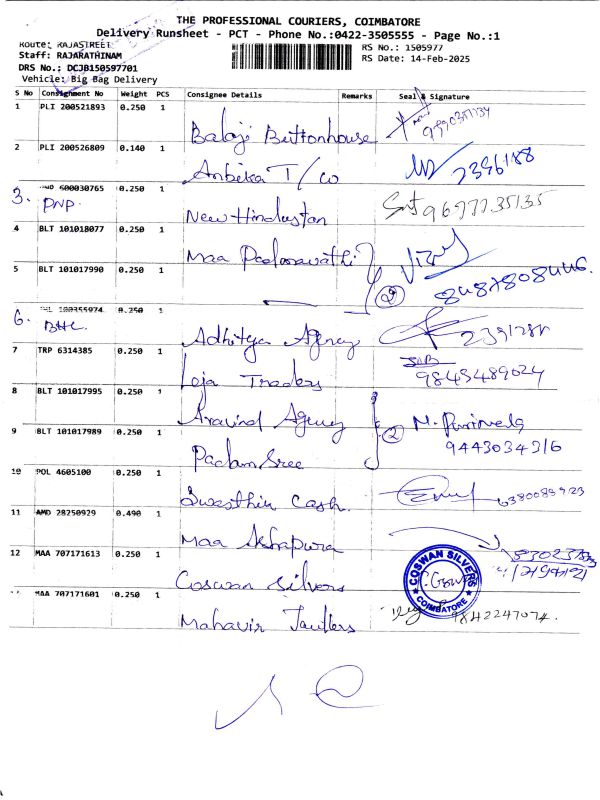 THE PROFESSIONAL COURIERS, COIMBATORE
Delivery Runsheet - PCT - Phone No.:0422-3505555 - Page No.:1
Route: RAJASTREET
RS No.: 1505977
Staff: RAJARATHINAM
RS Date: 14-Feb-2025
DRS No.: DCJB150597701
Vehicle: Big Bag Delivery
S No Consignment No Weight PCS Consignee Details Remarks Seal & Signature
1 PLI 200521893 0.250 1
Balaji Buttonhouse
2 PLI 200526809 0.140 1
Ambika T/co 2396188
3. 600030765 0.250 1
PNP New Hindustan 9697735135
4 BLT 101018077 0.250 1
Maa Padmavathi
5 BLT 101017990 0.250 1
② 8487808446.
6. 100355974 0.250 1
Adhitya Agency
7 TRP 6314385 0.250 1
Leja Traders 9843489024
8 BLT 101017995 0.250 1
Aravind Agency ②
9 BLT 101017989 0.250 1
9443034316
Padam Sree
10 POL 4605100 0.250 1
Swasthik Cash.
11 AMD 28250929 0.490 1
Maa Ashapura
12 MAA 707171613 0.250 1
COSWAN SILVERS
COIMBATORE
Coswan Silvers
MAA 707171601 0.250 1
Mahavir Jewllers 9842247074.